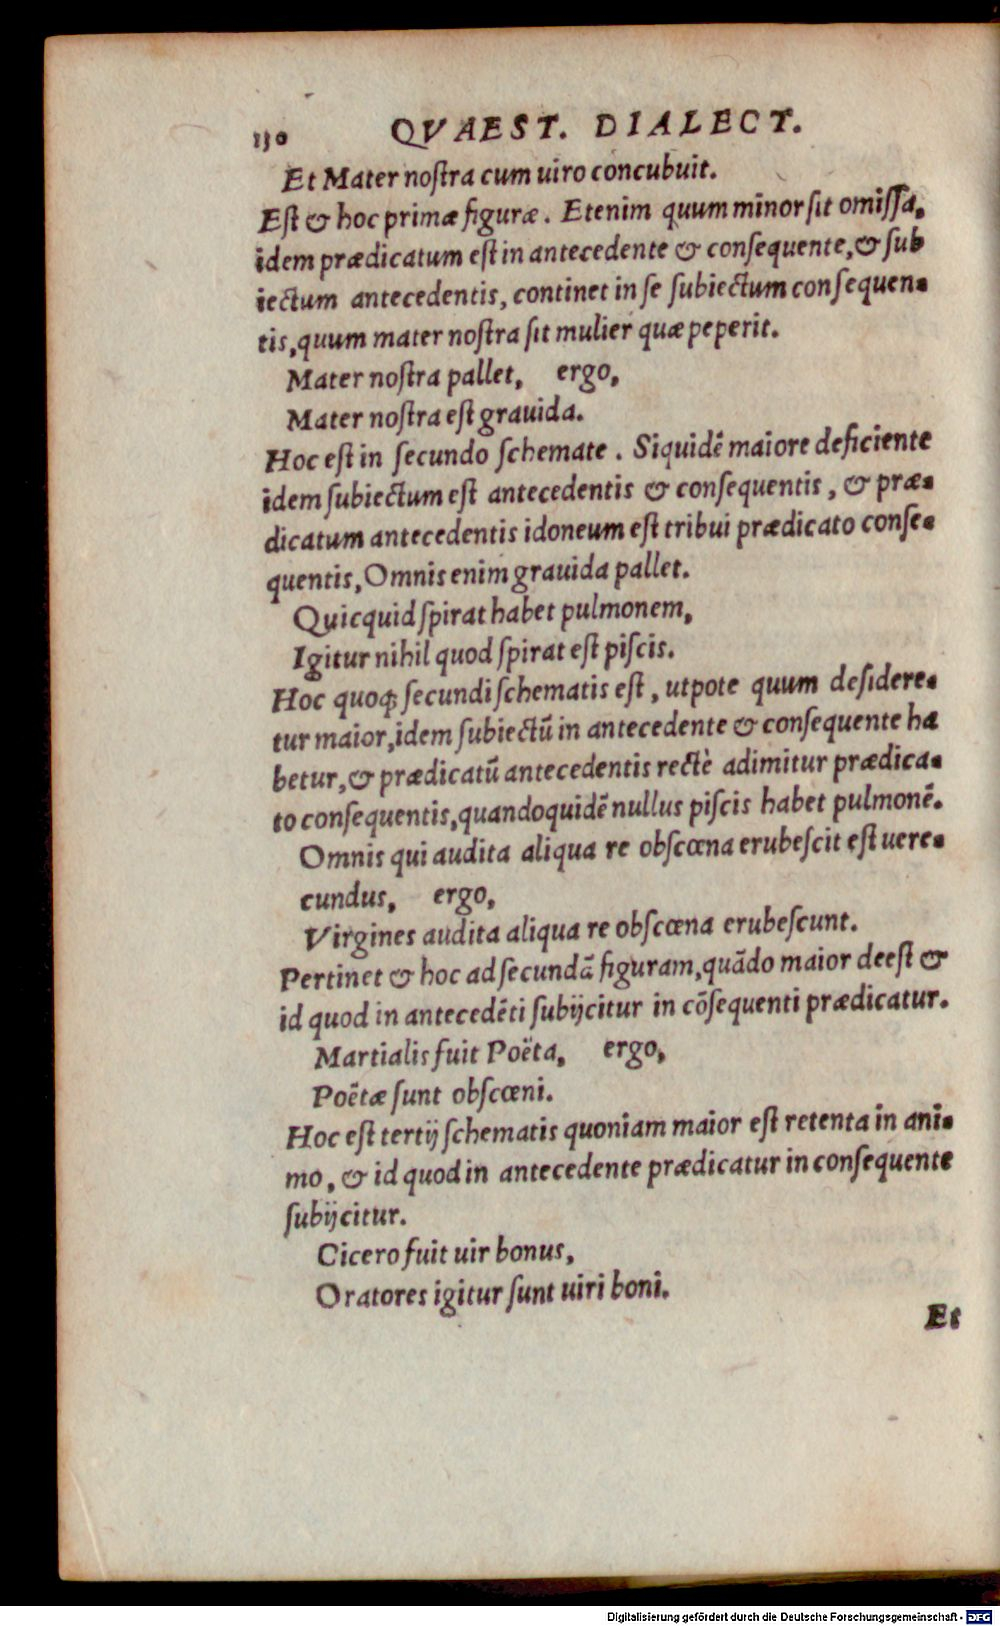 130 QVAEST. DIALECT.
Et Mater noſtra cum uiro concubuit.
Eſt & hoc primæ figuræ. Etenim quum minor ſit omiſſa,
idem prædicatum eſt in antecedente & conſequente, & ſub
iectum antecedentis, continet in ſe ſubiectum conſequen-
tis, quum mater noſtra ſit mulier quæ peperit.
Mater noſtra pallet, ergo,
Mater noſtra eſt grauida.
Hoc eſt in ſecundo ſchemate. Siquidē maiore deficiente
idem ſubiectum eſt antecedentis & conſequentis, & præ-
dicatum antecedentis idoneum eſt tribui prædicato conſe-
quentis, Omnis enim grauida pallet.
Quicquid ſpirat habet pulmonem,
Igitur nihil quod ſpirat eſt piſcis.
Hoc quoq; ſecundi ſchematis eſt, utpote quum deſidere-
tur maior, idem ſubiectū in antecedente & conſequente ha
betur, & prædicatū antecedentis rectè adimitur prædica-
to conſequentis, quandoquidē nullus piſcis habet pulmonē.
Omnis qui audita aliqua re obſcœna erubeſcit eſt uere-
cundus, ergo,
Virgines audita aliqua re obſcœna erubeſcunt.
Pertinet & hoc ad ſecundā figuram, quādo maior deeſt &
id quod in antecedēti ſubijcitur in cōſequenti prædicatur.
Martialis fuit Poëta, ergo,
Poëtæ ſunt obſcœni.
Hoc eſt tertij ſchematis quoniam maior eſt retenta in ani-
mo, & id quod in antecedente prædicatur in conſequente
ſubijcitur.
Cicero fuit uir bonus,
Oratores igitur ſunt uiri boni.
Et
Digitalisierung gefördert durch die Deutsche Forschungsgemeinschaft - DFG